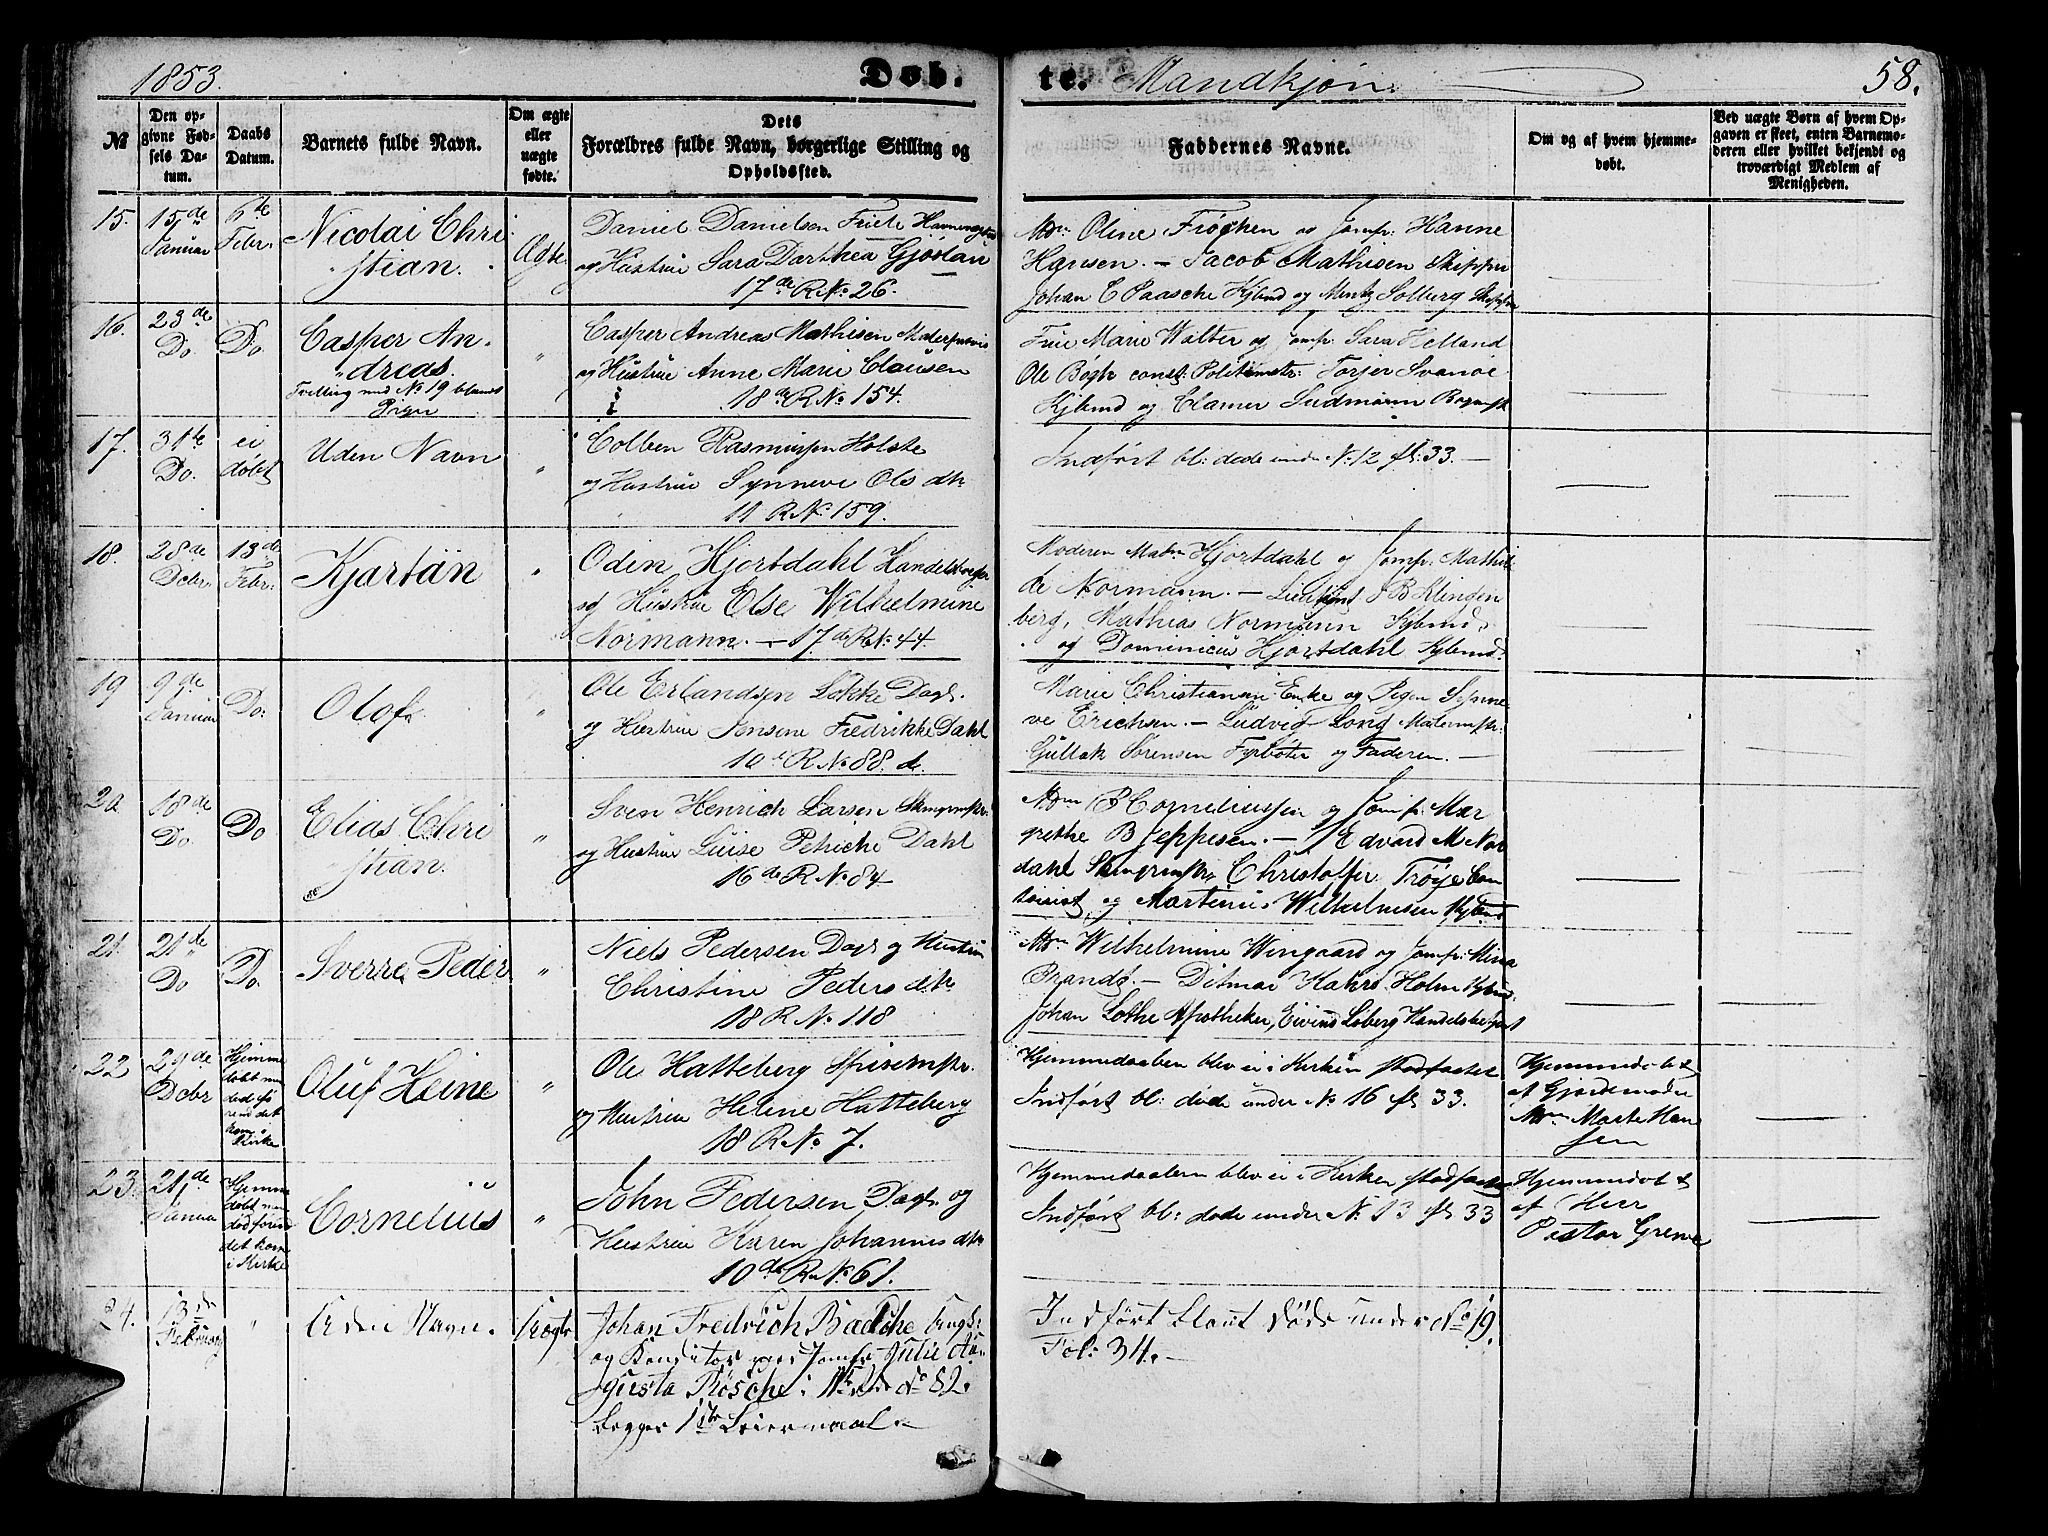 1853.
Døb. te. Mandkjøn. 58.
№
Den op-
givne Fød-
sels Da-
tum.
Daabs
Datum.
Barnets fulde Navn.
Om ægte
eller
uægte
fødte.
Dets
Forældres fulde Navn, borgerlige Stilling og
Opholdssted.
Faddernes Navne.
Om og af hvem hjemme-
døbt.
Ved uægte Børn af hvem Op-
gaven er skeet, enten Barnemo-
deren eller hvilket bekjendt og
troværdigt Medlem af
Menigheden.
15.
15de
Januar
6te
Febr.
Nicolai Chri
stian.
Ægte.
Daniel Danielsen Friele
og Hustrue Sara Dorthea Gjøslan
17de R No 26.
Mdm Oline Frøchen og Jomfr: Hanne
Hansen. — Jacob Mathisen Skipper
Johan C Paasche Kjbmd og Mentz Solberg
16.
23de
Do.
Do
Casper An
dreas.
Tvilling med No 19 blandt
Piger
"
Casper Andreas Mathisen
og Hustrue Anne Marie Clausen
18de R No 154.
Frue Marie Walter og Jomfr Sara Helland
Ole Bøgh const: Politimstr: Torjer Svanøe
Kjbmd og Clamer Sudmann
17.
31te
Do.
ei
døbt
Uden Navn
"
Colben Rasmussen Holste
og Hustrue Synneve Ols dtr
11 R No 159.
Indført bl: døde under No 12 fl: 33. —
18.
28de
Decbr
13de
Febr.
Kjartan
"
Odin Hjortdahl
og Hustrue Else Wilhelmine
Normann. — 17de R No 44.
Moderen Madm Hjortdahl og Jomfr: Mathil
de Normann. — Lieutnt J B Klingen
berg, Mathias Normann Kjbmd,
og Dominicus Hjortdahl Kjbmd.
19
9de
Januar
Do:
Olof.
"
Ole Erlandsen Løkke Dagk.
og Hustrue Jensine Fredrikke Dahl
10de R No 88. d.
Marie Christiane Enke og Pigen Synne
ve Erichsen. — Ludvig Long Malermstr:
Gullak Sørensen Fyrbøter og Faderen. —
20
18de
Do.
Do
Elias Chri
stian.
"
Sven Henrich Larsen
og Hustrue Luise Petriche Dahl
16de R No 84
Mdm P Corneliussen og Jomfr: Mar
grethe B Jeppesen. — Edvard M Nor
dahl Christoffer Trøye Con
toirist, og Martinus Wilhelmsen Kjbmd
21.
21de
Do
Do.
Sverre Peder
"
Niels Pedersen Dagk og Hustrue
Christine Peders dtr
18 R No 118
Mdm Wilhelmine Wingaard og Jomfr: Mina
Brandt. — Ditmar Hahrs Holm Kjbmd.
Johan Lothe Apotheker, Eivind Løberg
22
29de
Decbr
Hjemme
døbt men
død fø
rend det
kom i
Kirke
Oluf Heine
"
Ole Hatteberg
og Hustrue Helene Hatteberg
18 R No 7.
Hjemmedaaben blev ei i Kirken stadfæstet
Indført bl: døde under No 16 fl 33.
Hjemmedøbt
af Gjordemoder
Mdm Marte Han
sen
23.
21de
Januar
Hjemme
døbt men
død førend
det kom
i Kirke
Cornelius
"
John Pedersen Dagk. og
Hustrue Karen Johannes dtr
10de R No 61.
Hjemmedaaben blev ei i Kirken stadfæstet
Indført bl: døde under No 13 fl 33
Hjemmedøbt
af Herr
Pastor Greve
24.
13de
Februar
"
Uden Navn.
Uægte
Johan Fredrich Ungk:
og Konditor og Jomfr Julie Au-
gusta Røsche i No 82.
Begges 1ste Leiermaal.
Indført blant døde under No 19.
Fol: 34. —